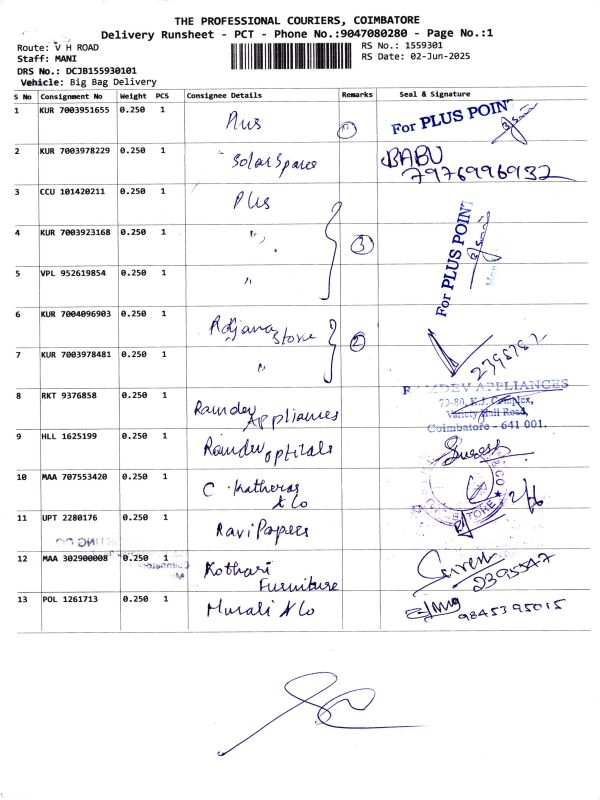 THE PROFESSIONAL COURIERS, COIMBATORE
Delivery Runsheet - PCT - Phone No.:9047080280 - Page No.:1
Route: V H ROAD
RS No.: 1559301
Staff: MANI
RS Date: 02-Jun-2025
DRS No.: DCJB155930101
Vehicle: Big Bag Delivery
S No Consignment No Weight PCS Consignee Details Remarks Seal & Signature
1 KUR 7003951655 0.250 1 Plus 1 For PLUS POINT
2 KUR 7003978229 0.250 1 Solar Spares BABU
7976996932
3 CCU 101420211 0.250 1 Plus
4 KUR 7003923168 0.250 1 〃 3 For PLUS POINT
5 VPL 952619854 0.250 1 〃
6 KUR 7004096903 0.250 1 Store 2
7 KUR 7003978481 0.250 1 〃
8 RKT 9376858 0.250 1 Ramdev Appliances
RAMDEV APPLIANCES
79-80, K.J. Complex,
Variety Hall Road,
Coimbatore - 641 001.
9 HLL 1625199 0.250 1 Ramdev opticals Suresh
10 MAA 707553420 0.250 1 C. & Co
11 UPT 2280176 0.250 1 Ravi Papers
12 MAA 302900008 0.250 1 Kothari Furniture
2395547
13 POL 1261713 0.250 1 Murali & Co 9845395015